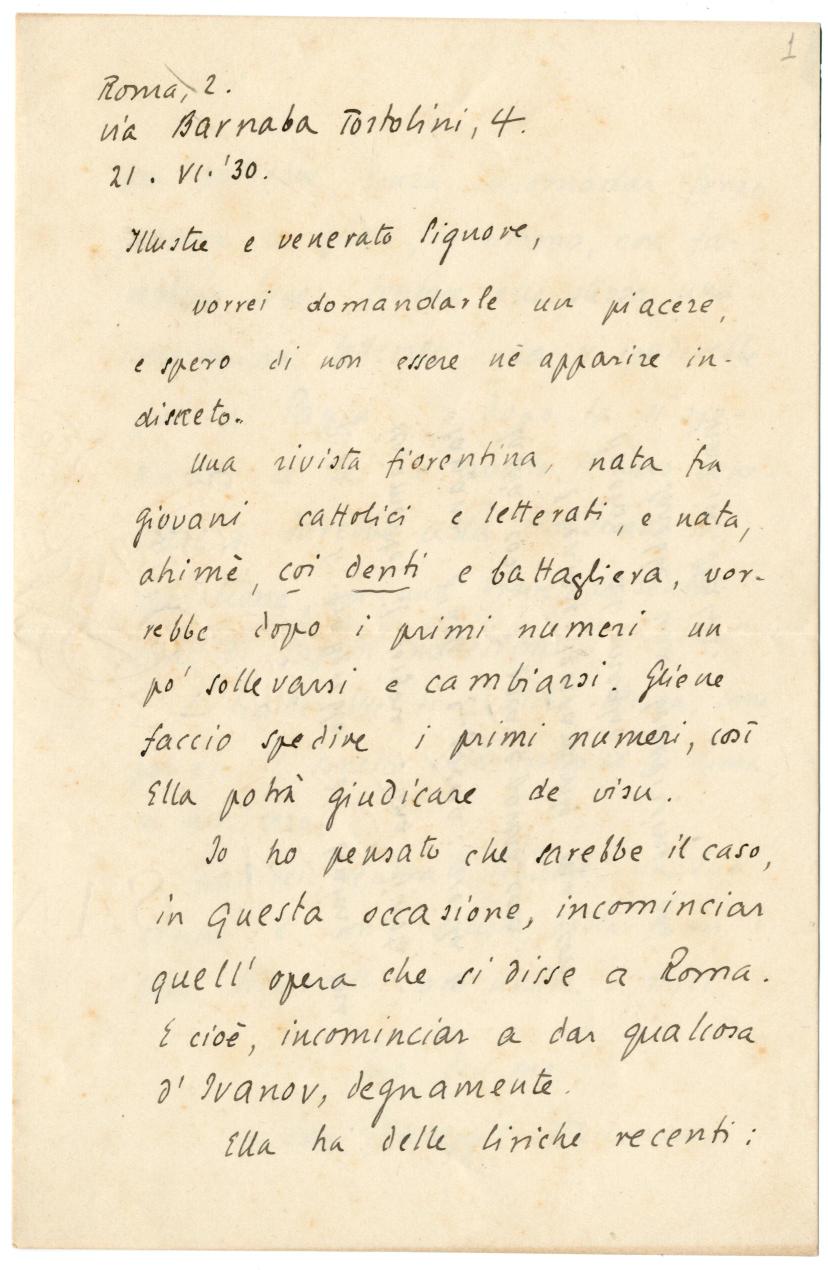 1
Roma, 2.
via Barnaba Tortolini, 4.
21. VI. '30.
Illustre e venerato Signore,
vorrei domandarle un piacere,
e spero di non essere nè apparire in-
discreto.
Una rivista fiorentina, nata fra
giovani cattolici e letterati, e nata,
ahimè, coi denti e battagliera, vor-
rebbe dopo i primi numeri un
po' sollevarsi e cambiarsi. Gliene
faccio spedire i primi numeri, così
Ella potrà giudicare de visu.
Io ho pensato che sarebbe il caso,
in questa occasione, incominciar
quell' opera che si disse a Roma.
E cioè, incominciar a dar qualcosa
d' Ivanov, degnamente.
Ella ha delle liriche recenti: